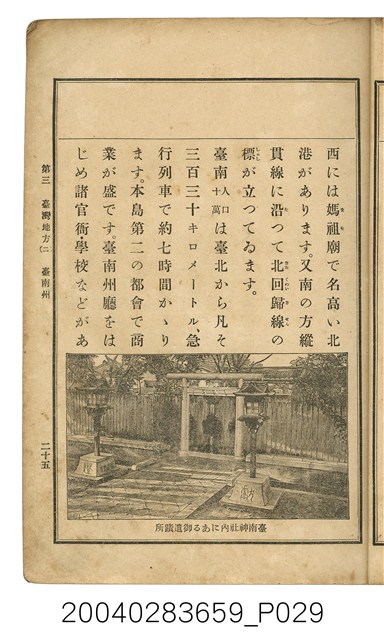 西には媽祖廟で名高い北
港があります。又南の方縱
貫線に沿つて北回歸線の
標が立つてゐます。
臺南人口十萬は臺北から凡そ
三百三十キロメートル、急
行列車で約七時間かゝり
ます。本島第二の都會で商
業が盛です。臺南州廳をは
じめ諸官衙・學校などがあ
臺南神社内にある御遺蹟所
第三 臺灣地方(二) 臺南州
二十五
20040283659_P029